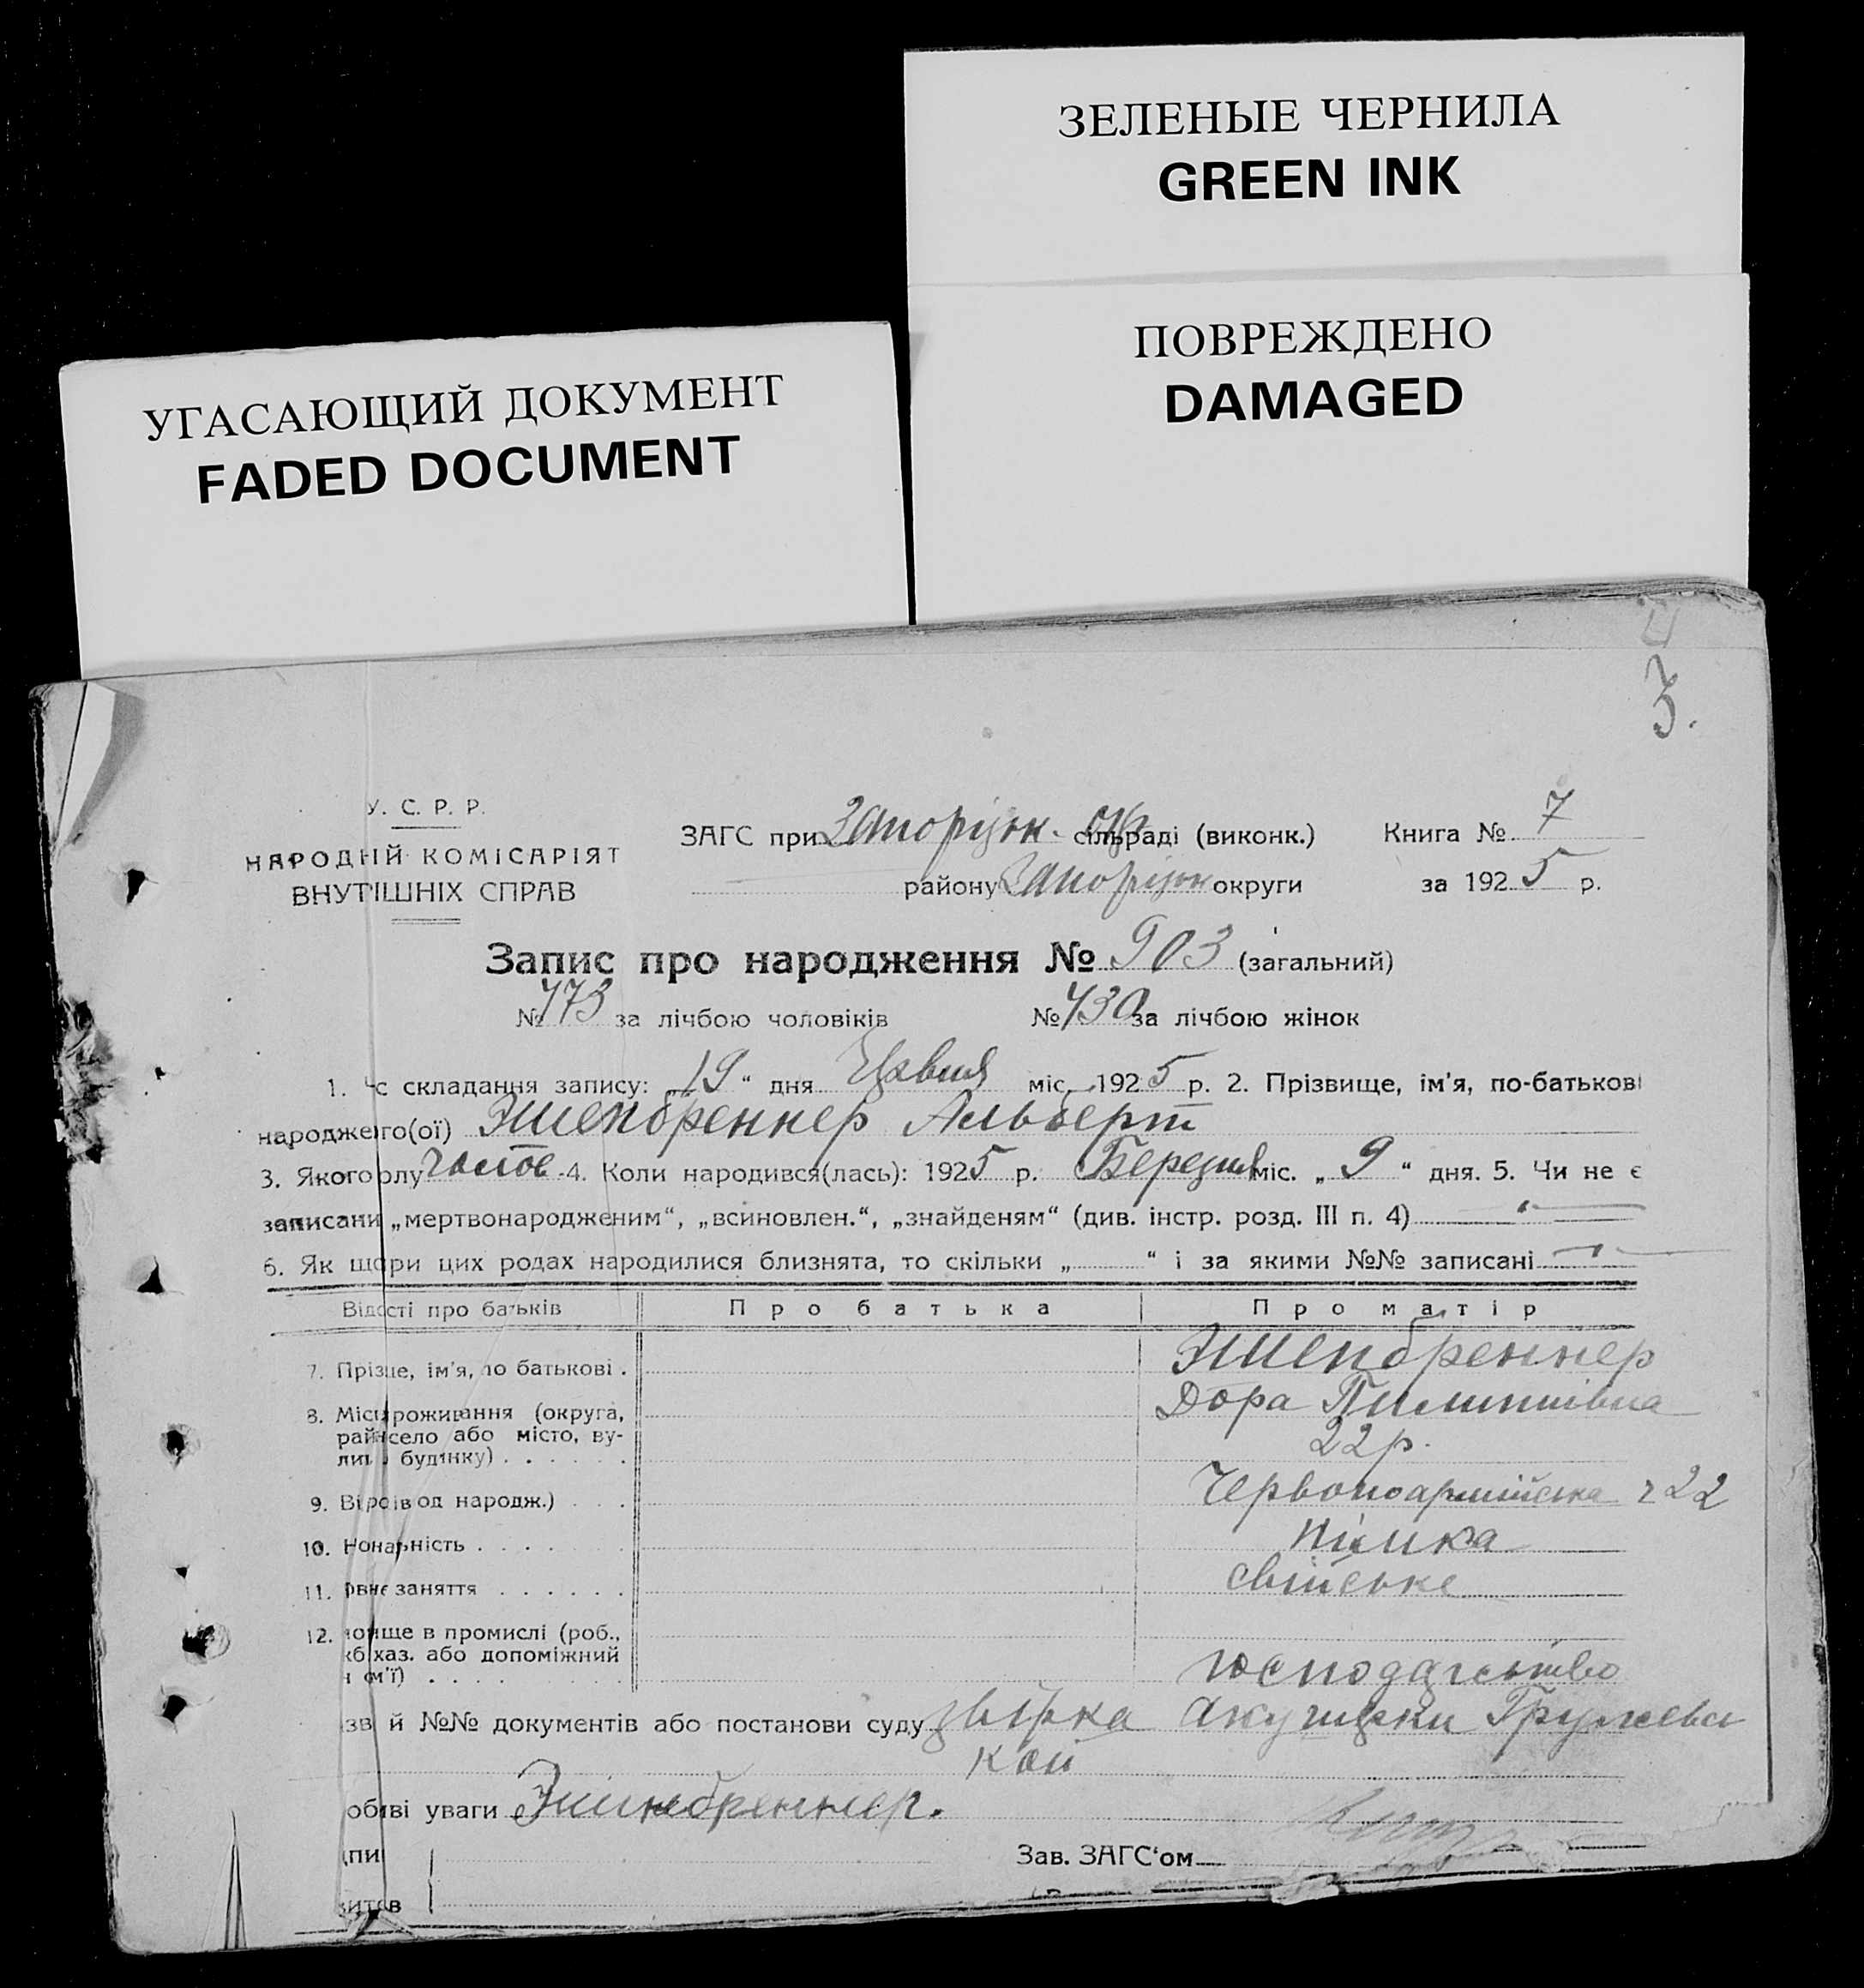 ЗЕЛЕНЫЕ ЧЕРНИЛА
GREEN INK
ПОВРЕЖДЕНО
DAMAGED
УГАСАЮЩИЙ ДОКУМЕНТ
FADED DOCUMENT
3.
У. С. Р. Р.
НАРОДНІЙ КОМІСАРІЯТ
ВНУТІШНІХ СПРАВ
ЗАГС при Запоріжж. окр сільраді (виконк.) Книга № 7
району Запоріжж округи за 1925 р.
Запис про народження № 903 (загальний)
№ 473 за лічбою чоловіків № 430 за лічбою жінок
1. с складання запису: „19“ дня Червня міс. 1925 р. 2. Прізвище, ім'я, по-батькові
народжего(ої) Эшенбреннер Альберт
3. Якого олу чолов. 4. Коли народився(лась): 1925 р. Березня міс. „9“ дня. 5. Чи не є
записани „мертвонародженим“, „всиновлен.“, „знайденям“ (див. інстр. розд. III п. 4)
6. Як що ри цих родах народилися близнята, то скільки „ “ і за якими №№ записані
Відості про батьків Про батька Про матір
7. Прізще, ім'я, по батькові . Эшенбреннер
Дора Пилипівна
8. Місц роживання (округа,
рай село або місто, ву-
ли будинку) 22 р.
9. Ві од народж.) Червоноармійська 22
10. Но нальність німка
11. заняття свійське
12. ще в промислі (роб.,
хаз. або допоміжний
м'ї) господарство
зв й №№ документів або постанови суду звірка акушерки
кой
обиві уваги Эшинбреннер.
пи Зав. ЗАГС'ом